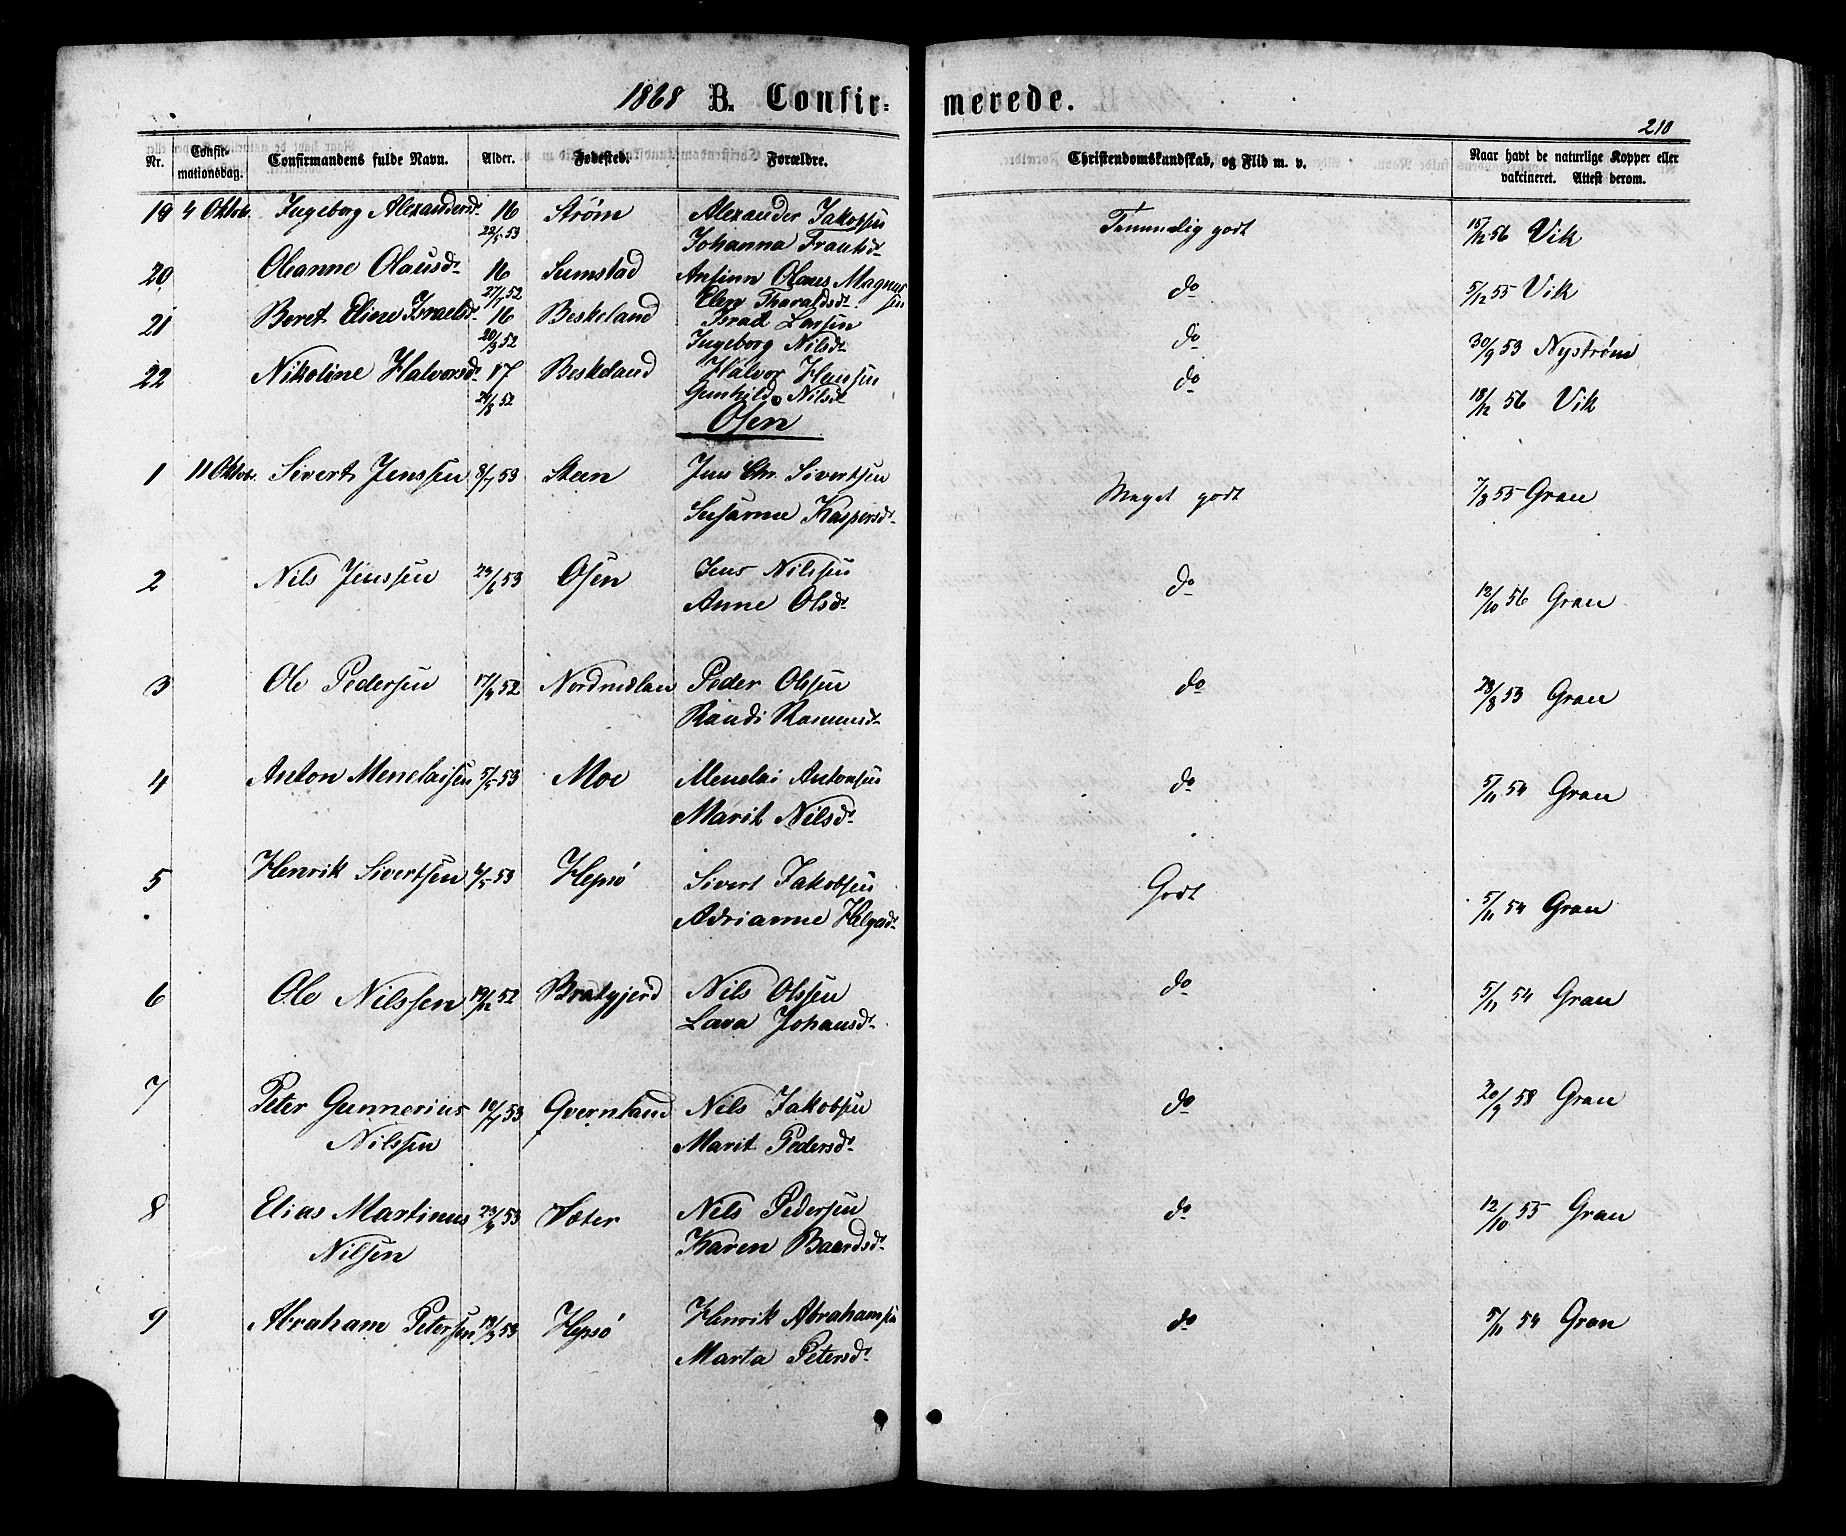 1868 B. Confirmerede.
210
Nr. Confirmationsdag. Confirmandens fulde Navn. Alder. Fødested. Forældre. Christendomskundskab, og Flid m. v. Naar havt de naturlige Kopper eller vakcineret. Attest derom.
19 4 Oktob. Ingeborg Alexandersd. 16 Strøm Alexander Jakobsen Temmelig godt 15/12 56 Vik
22/5 53 Johanna Frantsd.
20 Oleanne Olausd. 16 Sumstad Antinn Olaus Magnussen do 5/12 55 Vik
27/7 52 Elen Tharaldsd.
21 Beret Eline Israelsd. 16 Beskeland Israel Larsen do 30/9 53 Nystrøm
20/3 52 Ingeborg Nilsd.
22 Nikoline Halvorsd. 17 Beskeland Halvor Hansen do 18/12 56 Vik
/8 52 Gunhild Nilsd.
Osen
1 11 Oktob. Sivert Jenssen 8/7 53 Steen Jens Chr. Sivertsen Meget godt 7/8 55 Gran
Susanne Kaspersd.
2 Nils Jenssen 23/6 53 Osen Jens Nilssen do 12/10 56 Gran
Anne Olsd.
3 Ole Pedersen 17/9 52 Nordmelan Peder Olssen do 28/8 53 Gran
Randi Rasmusd.
4 Anton Menelaisen 5/5 53 Moe Menelai Antonsen do 5/11 54 Gran
Marit Nilsd.
5 Henrik Sivertsen 6/5 53 Hepsø Sivert Jakobsen Godt 5/11 54 Gran
Adrianne Helgesd.
6 Ole Nilssen 19/12 52 Bratgjerd Nils Olssen do 5/11 54 Gran
Lava Johansd.
7 Peter Gunnerius 10/7 53 Qvernland Nils Jakobsen do 20/9 58 Gran
Nilssen Marit Pedersd.
8 Elias Martinus 23/9 53 Sæter Nils Pedersen do 12/10 55 Gran
Nilsen Karen Baardsd.
9 Abraham Petersen 13/9 53 Hepsø Henrik Abrahamsen do 5/11 54 Gran
Marta Petersd.